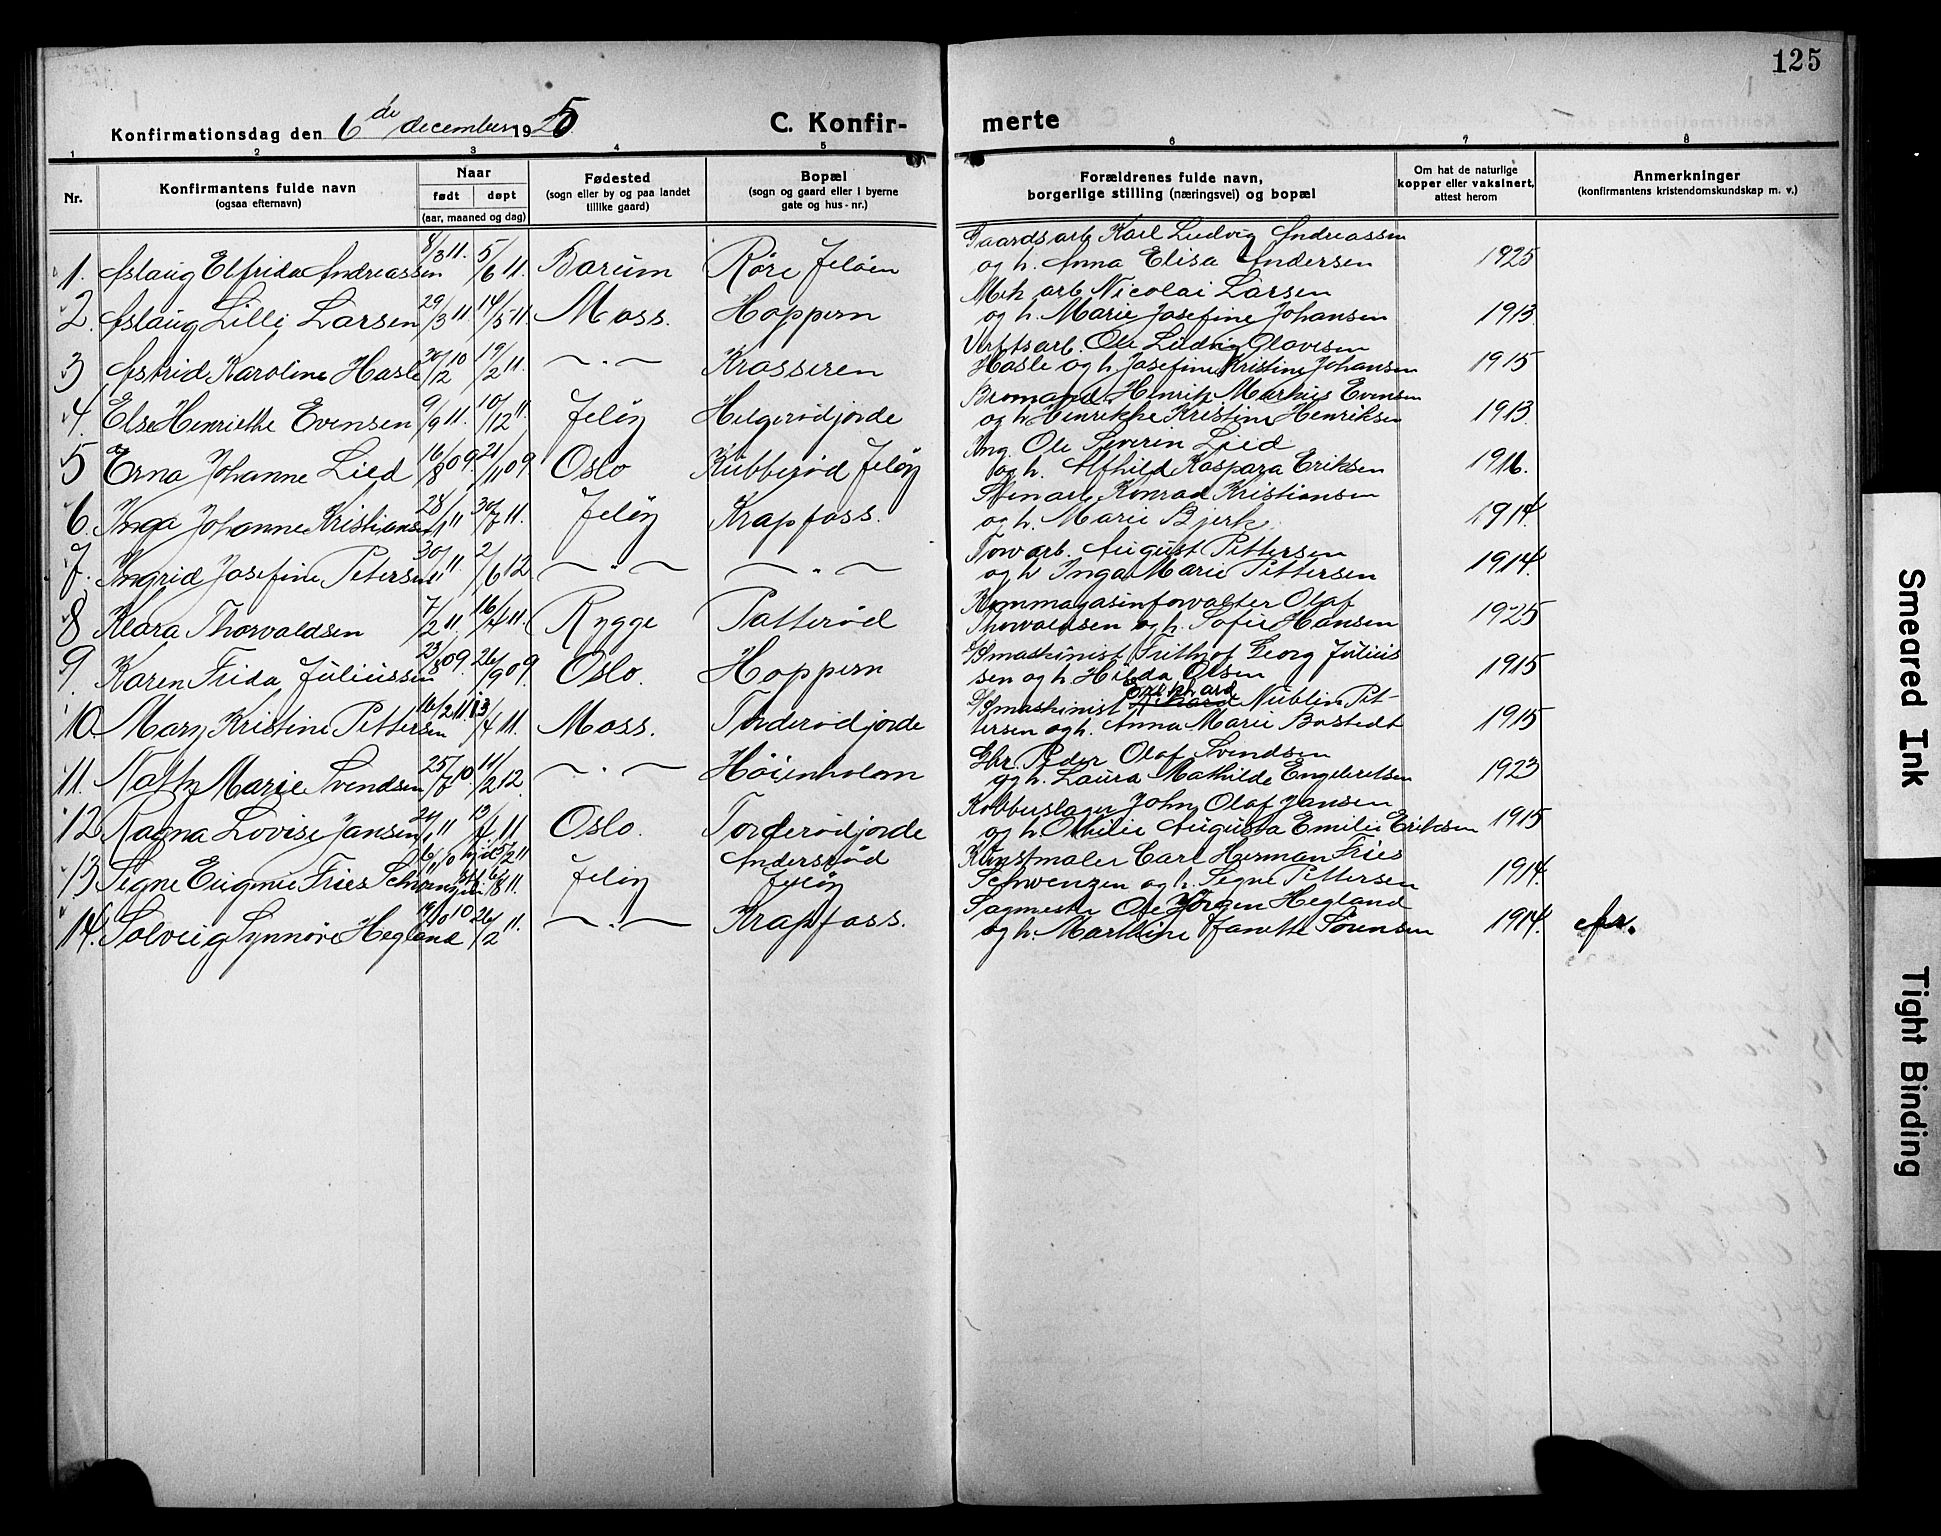 125
Konfirmationsdag den 6 de december 1925
C. Konfir-
merte
1 2 3 4 5 6 7 8
Nr.
Konfirmantens fulde navn
(ogsaa efternavn)
Naar
født døpt
(aar, maaned og dag)
Fødested
(sogn eller by og paa landet
tillike gaard)
Bopæl
(sogn og gaard eller i byerne
gate og hus-nr.)
Forældrenes fulde navn,
borgerlige stilling (næringsvei) og bopæl
Om hat de naturlige
kopper eller vaksinert,
attest herom
Anmerkninger
(konfirmantens kristendomskundskap m. v.)
Gaardsarb Karl Ludvig Andreassen
1. Aslaug Elfrida Andreassen 8/3 11. 5/6 11. Barum Røre Jeløen og h. Anna Elisa Andersen 1925
Mek arb Nicolai Larsen
2. Aslaug Lilli Larsen 29/3 11 14/5 11. Moss. Hoppern og h. Marie Josefine Johansen 1913
Verftsarb. Ole Ludvig Olavesen
3 Astrid Karoline Hasle 20/12 10 19/2 11. — " — Krosseren Hasle og h Josefine Kristine Johansen 1915
Bromand Henrik Markus Evensen
4. Else Henriette Evensen 9/9 11. 10/12 11. Jeløy Helgerødjorde og h Henrikke Kristine Henriksen 1913
Ing. Ole Severin Lied
5 Erna Johanne Lied 16/8 09. 21/11 09 Oslo Kubberød Jeløy og h. Alfhild Kaspara Eriksen 1916.
Stenarb Konrad Kristiansen
6. Inga Johanne Kristiansen 28/1 11 30/7 11. Jeløy Krapfoss. og h. Marie Bjerk. 1914.
Torvarb. August Pettersen
7. Ingrid Josefine Petersen 30/ 11 2/6 12 — " — — " — og h Inga Marie Pettersen 1914.
Kornmagasinforvalter Olaf
8 Klara Thorvaldsen 7/2 11 16/4 11. Rygge Patterød Thorvaldsen og h. Sofie Hansen 1925
maskinist Frithjof Georg Julius
9. Karen Frida Juliussen 23/8 09. 26/9 09. Oslo. Hoppern sen og h. Hilda Olsen 1915
maskinist Nublin Pet-
10. Mary Kristine Pettersen 16/2 11. 13/4 11. Moss. Torderødjorde tersen og h. Anna Marie Bostedt 1915
Peder Olaf Svendsen
11. Marie Svendsen 25/7 10 11/2 12. — " — Høienholm og h. Laura Mathilde Engebretsen 1923
Kobberslager John Olaf Jansen
12 Ragna Lovise Jansen 11 11 Oslo. Torderødjorde og h. Othilie Augusta Emilie Eriksen 1915
Kunstmaler Carl Herman Fries
13 Signe Eugenie Fries Schwenzen Jeløy Anderserød Jeløy Schwenzen og h. Signe Pettersen 1914.
Sagmester Ole Jørgen Hegland
14. Solveig Synnøve Hegland 10 26/2 11. — " — Krapfoss. og h. Marthine Janette Sørensen 1914.
Smeared Ink
Tight Binding